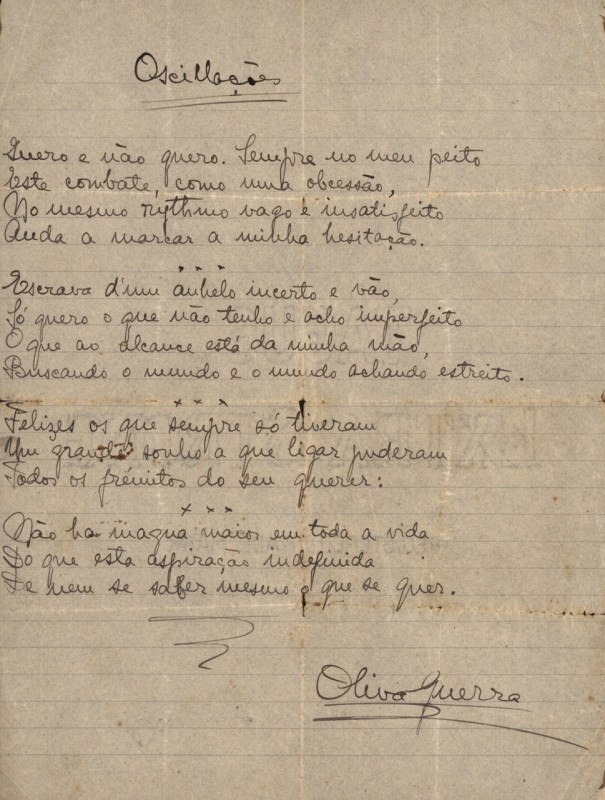 Oscillações
Quero e não quero. Sempre no meu peito
Este combate, como uma obcessão,
No mesmo rythmo vago e insatisfeito
Anda a marcar a minha hesitação.
x x x
Escrava d'um anhelo incerto e vão,
Só quero o que não tenho e acho imperfeito
O que ao alcance está da minha mão,
Buscando o mundo e o mundo achando estreito.
x x x
Felizes os que sempre só tiveram
Um grande sonho a que ligar puderam
Todos os frémitos do seu querer:
x x x
Não ha magua maior em toda a vida
Do que esta aspiração indefinida
De nem se saber mesmo o que se quer.
Oliva Guerra